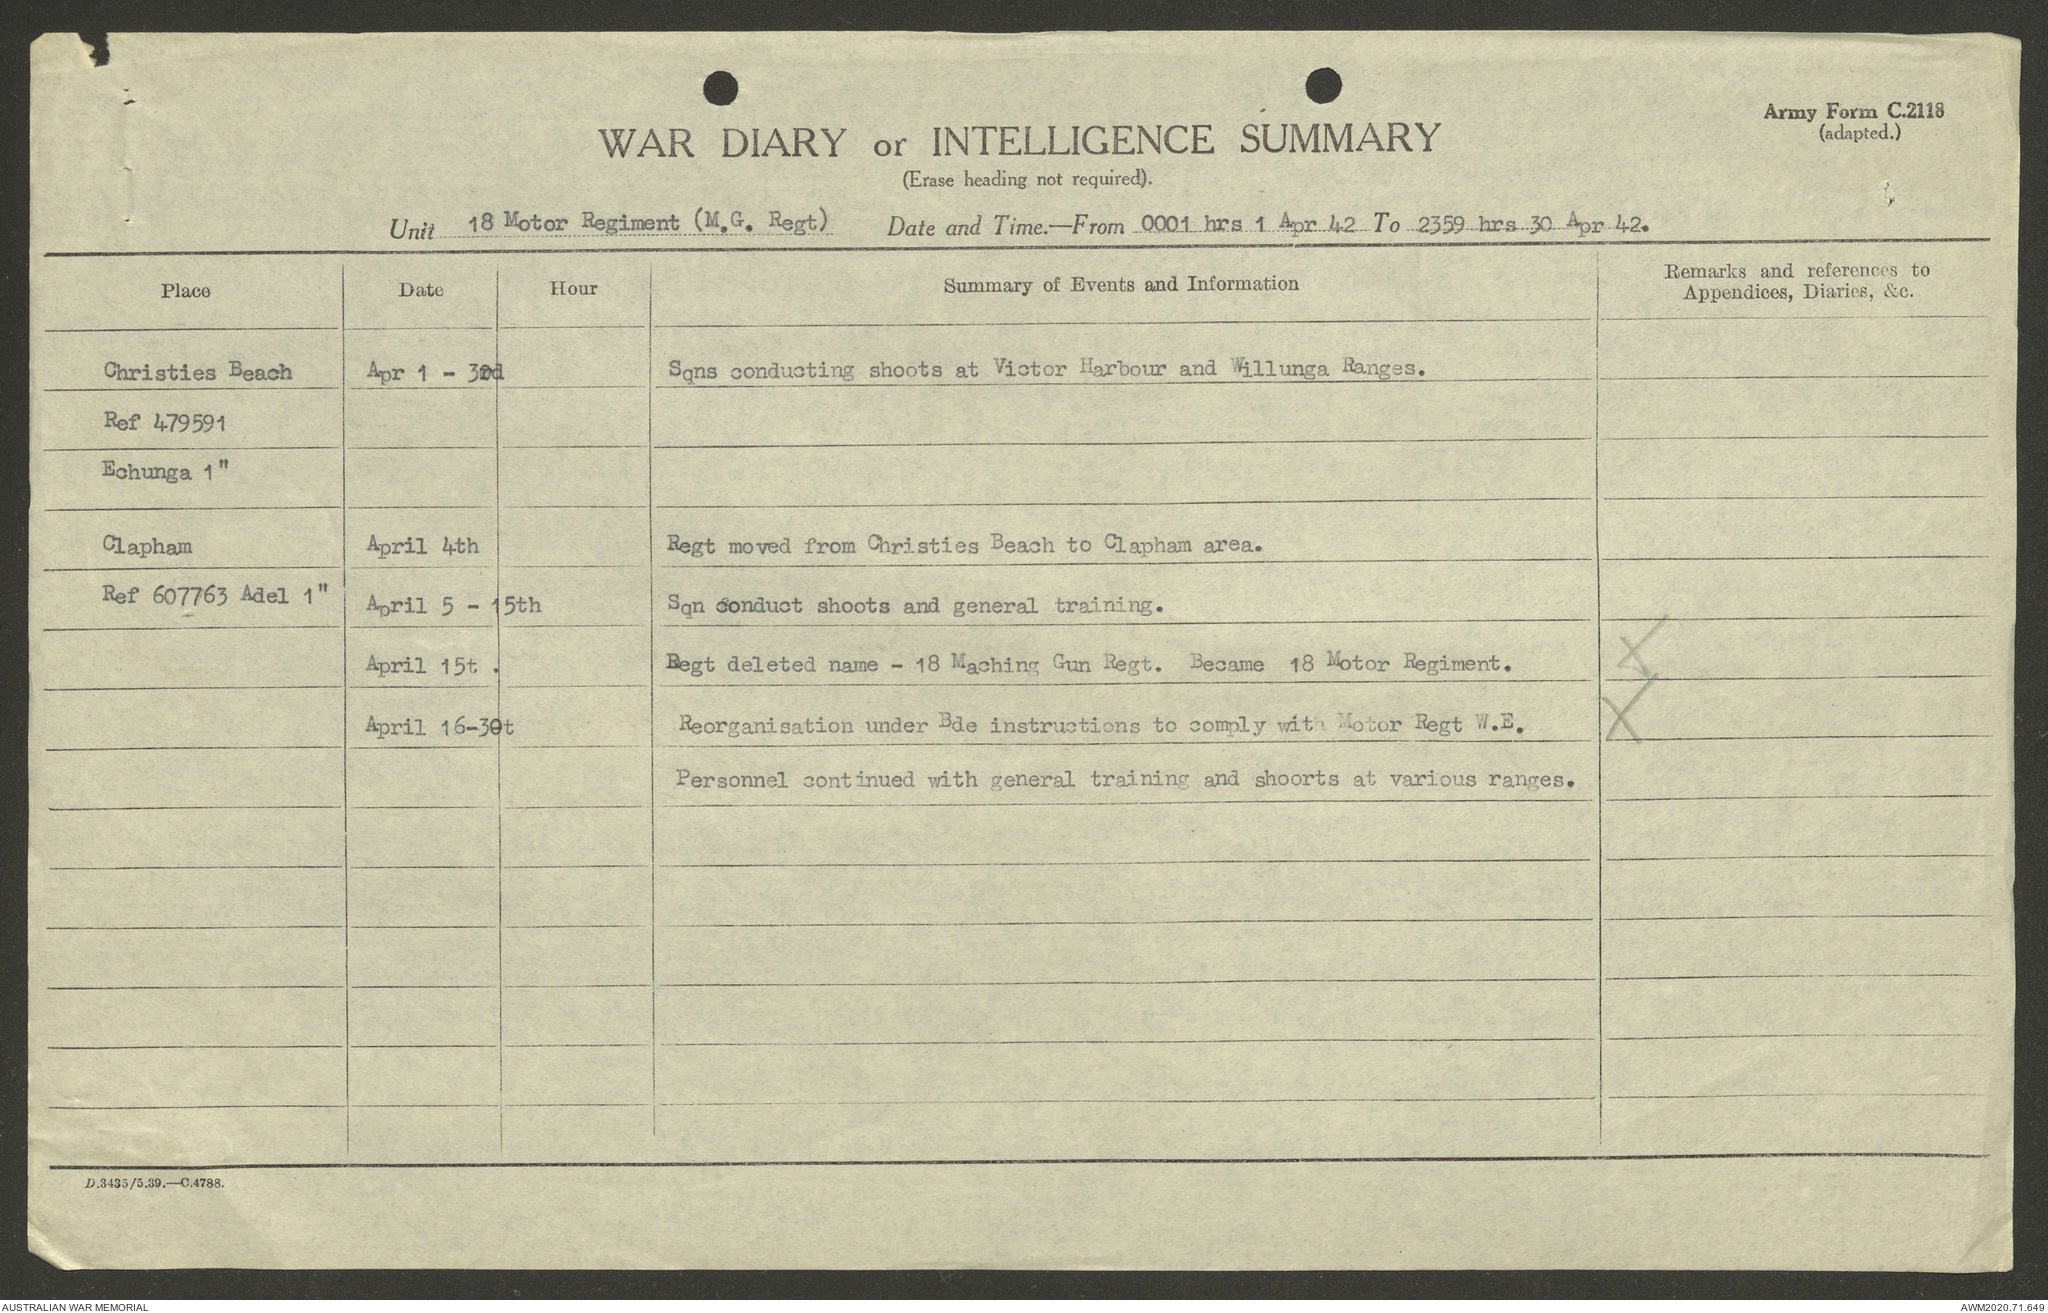 Army Form C.2118
(adapted.)
WAR DIARY or INTELLIGENCE SUMMARY
(Erase heading not required).
Unit 18 Motor Regiment (M.G. Regt) Date and Time.—From 0001 hrs 1 Apr 42 To 2359 hrs 30 Apr 42.
Place Date Hour Summary of Events and Information Remarks and references to
Appendices, Diaries, &c.
Christies Beach Apr 1 - 3rd Sqns conducting shoots at Victor Harbour and Willunga Ranges.
Ref 479591
Echunga 1"
Clapham April 4th Regt moved from Christies Beach to Clapham area.
Ref 607763 Adel 1" April 5 - 15th Sqn conduct shoots and general training.
April 15t . Regt deleted name - 18 Maching Gun Regt. Became 18 Motor Regiment. X
April 16-30t Reorganisation under Bde instructions to comply with Motor Regt W.E. X
Personnel continued with general training and shoorts at various ranges.
D.3435/5.39.—C.4788.
AUSTRALIAN WAR MEMORIAL AWM2020.71.649